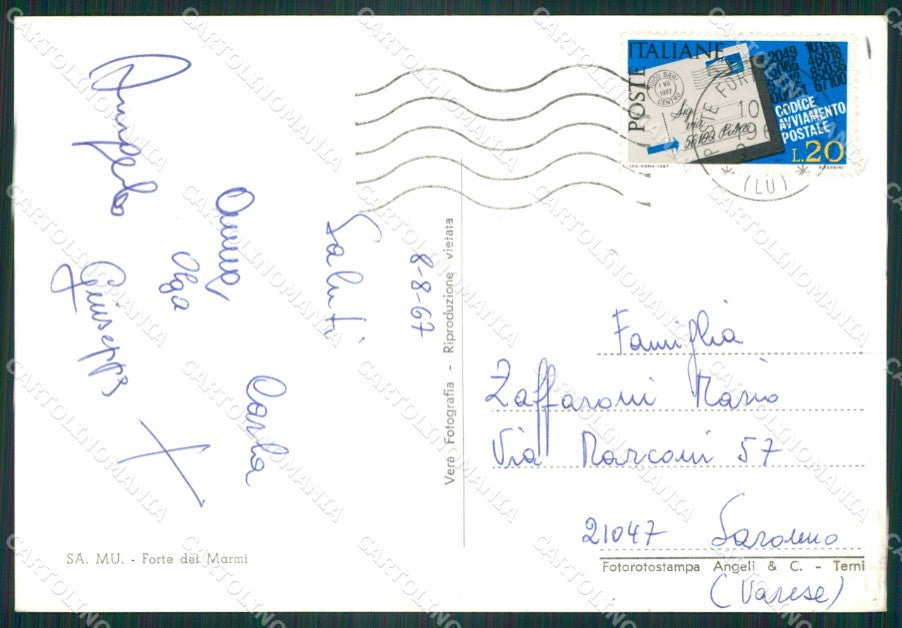 8-8-67
Saluti
Carla
Anna,
Olga
Angelo
Giuseppe
SA. MU. - Forte dei Marmi
Vera Fotografia - Riproduzione vietata
POSTE ITALIANE
CODICE
AVVIAMENTO
POSTALE
L.20
56100 Pisa
I.P.S.-ROMA-1967
(LU)
Famiglia
Zaffaroni Mario
Via Marconi 57
21047 Saronno
Fotorotostampa Angeli & C. - Terni
(Varese)
CARTOLINOMANIA